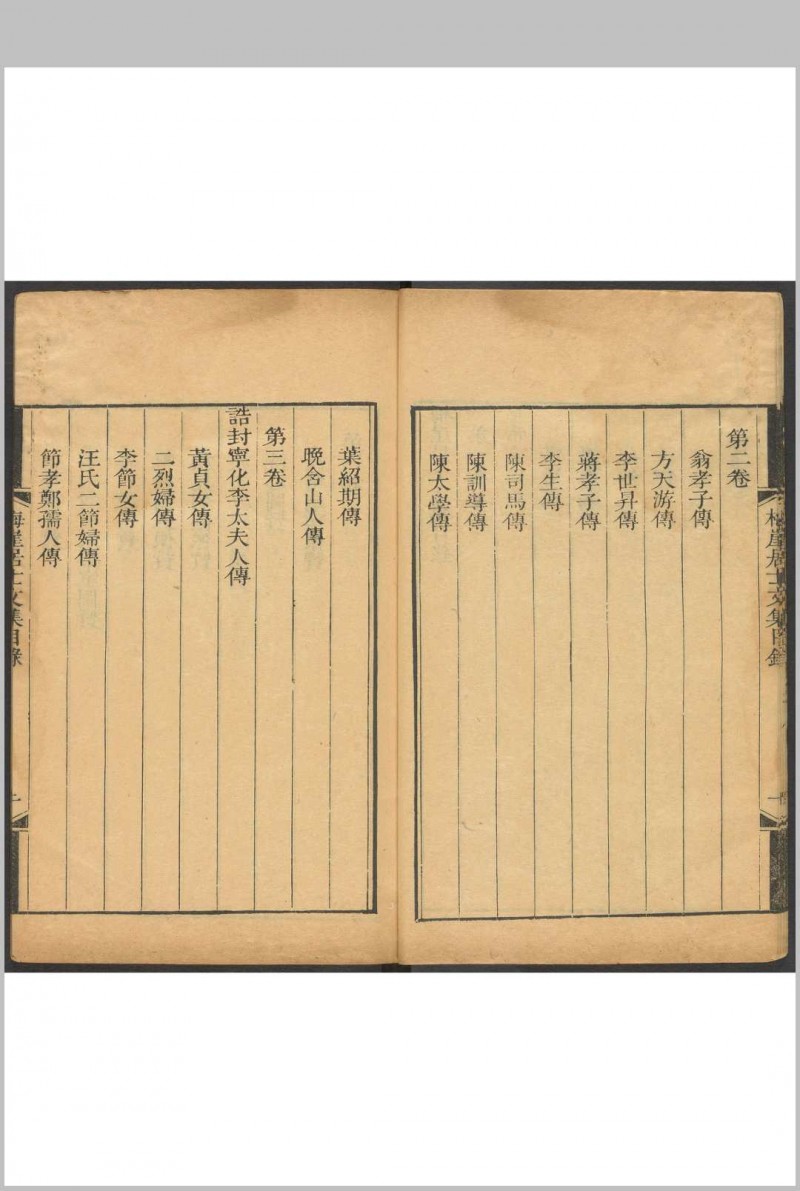 第二卷
翁孝子傳
方天游傳
李世昇傳
蔣孝子傳
李生傳
陳司馬傳
陳訓導傳
陳太學傳
梅崖居士文集目錄
一
葉紹期傳
晚舍山人傳
第三卷
誥封寧化李太夫人傳
黃貞女傳
二烈婦傳
李節女傳
汪氏二節婦傳
節孝鄭孺人傳
梅崖居士文集目錄